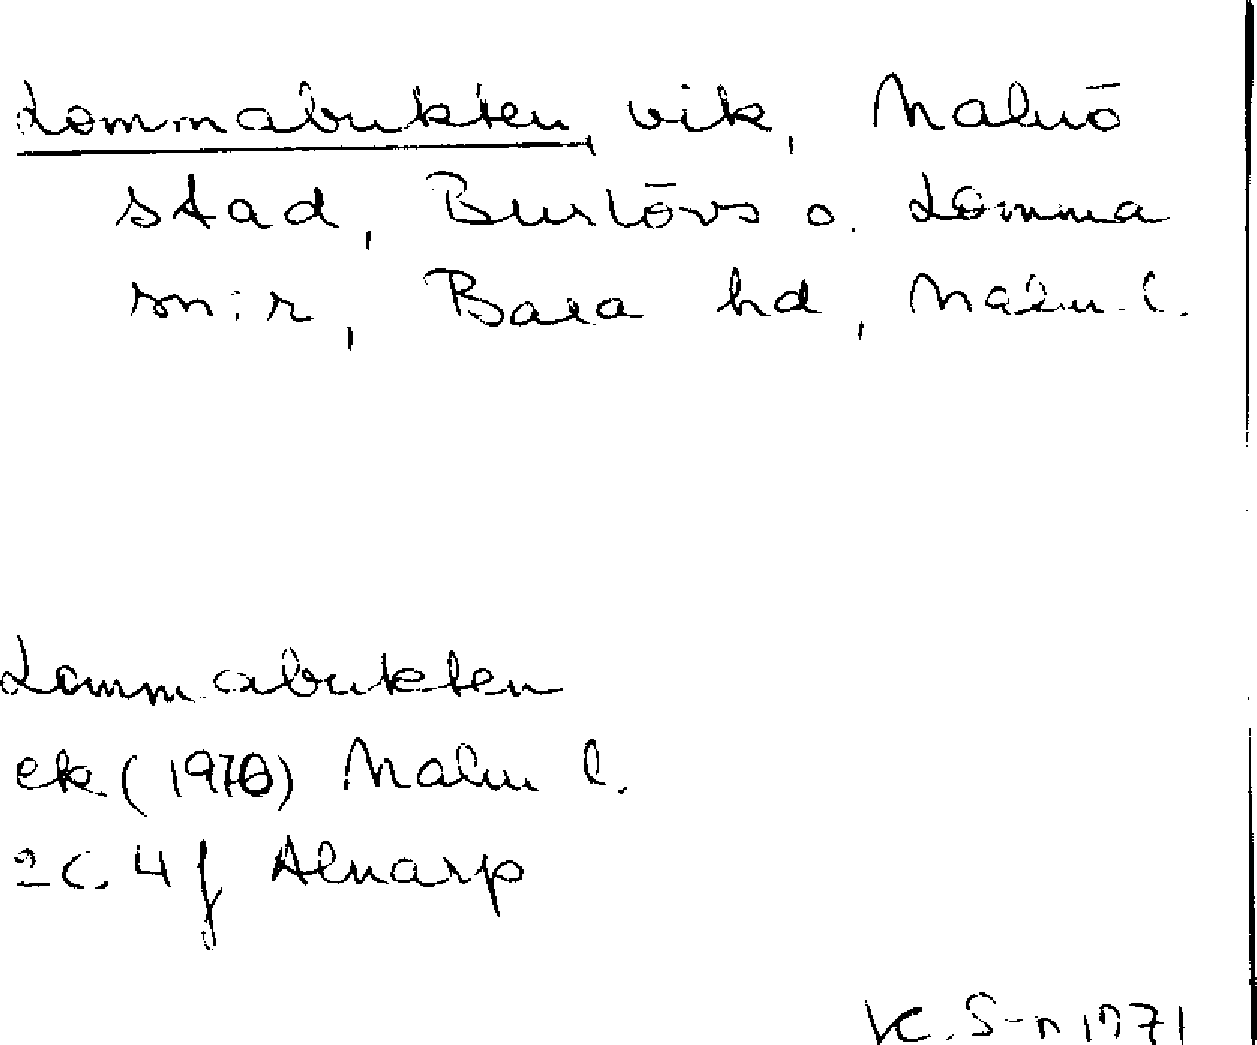 Lommabukten, vik, Malmö
stad, Burlövs o. Lomma
sn:r, Bara hd, Malm. l.
Lommabukten
ek (1970) Malm l.
2C. 4 f Alnarp
K. S-n 1971